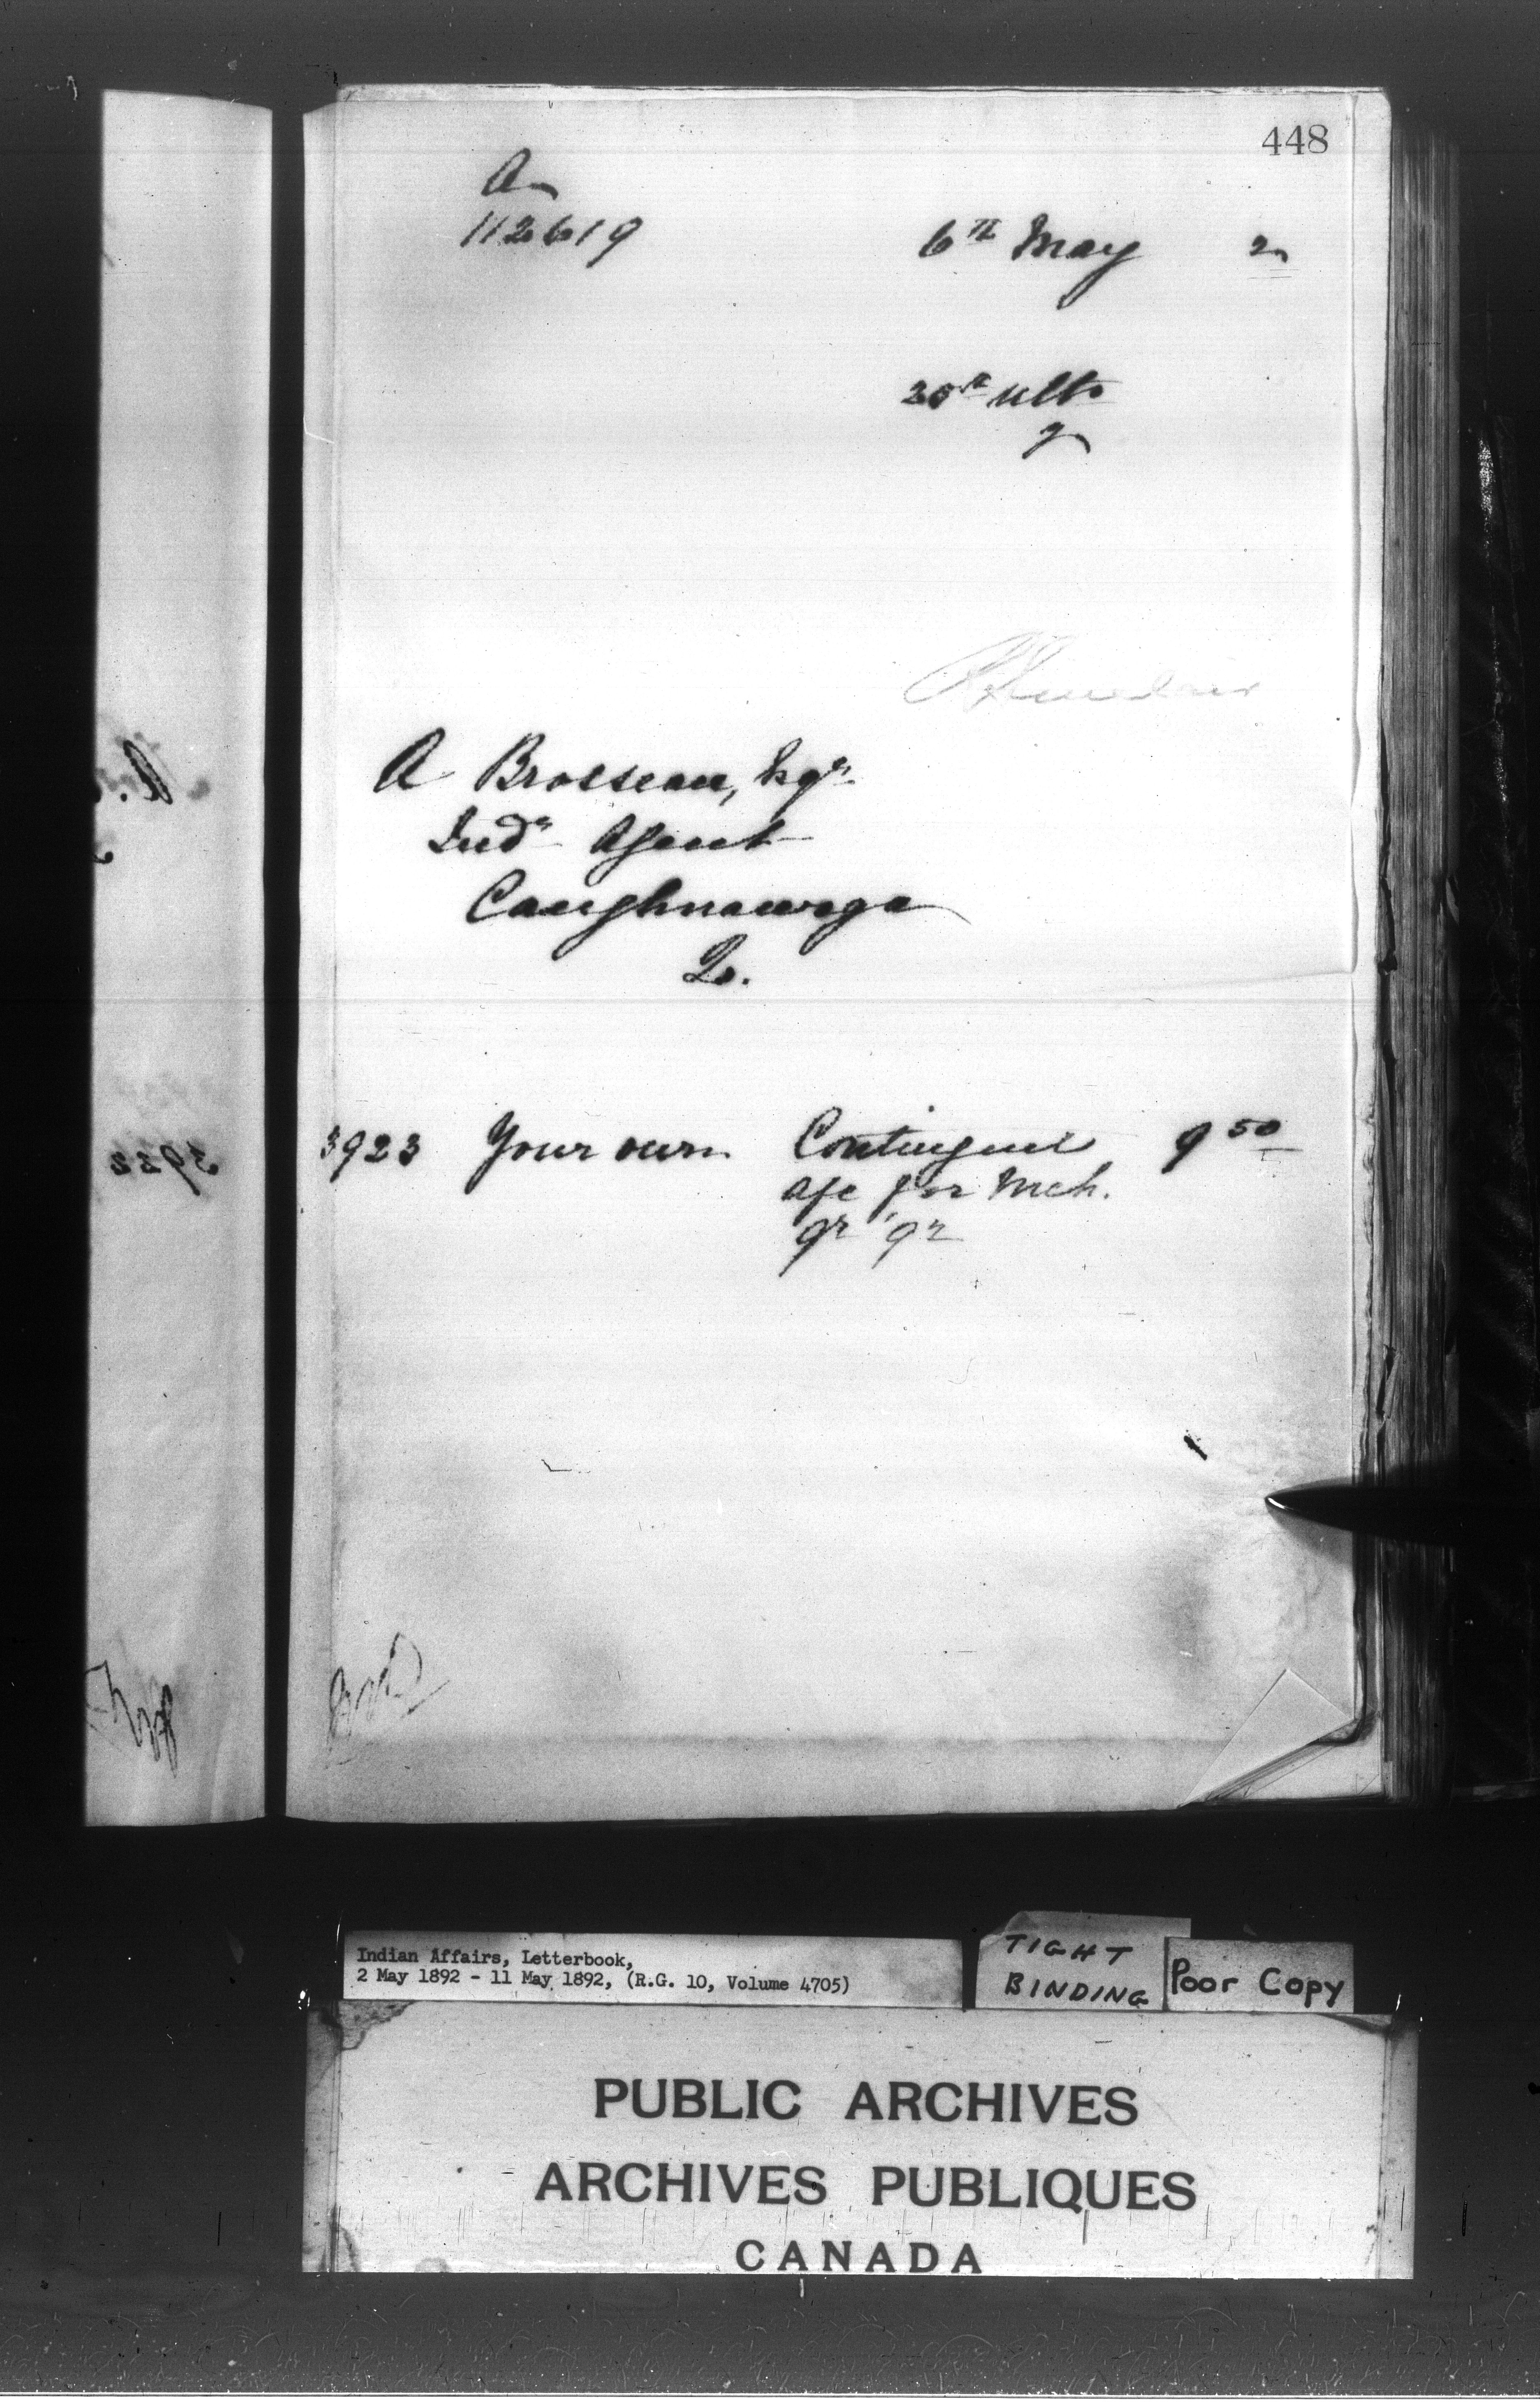 448
A
112619
6th May 2
25th ulto
2
A Brosseau, Esqr.
Indn Agent
Caughnawaga
Q.
3923 Your own Contingent 9 50
a/c for Mch.
qr '92
Indian Affairs, Letterbook,
2 May 1892 - 11 May 1892, (R.G. 10, Volume 4705)
TIGHT
BINDING
Poor Copy
PUBLIC ARCHIVES
ARCHIVES PUBLIQUES
CANADA